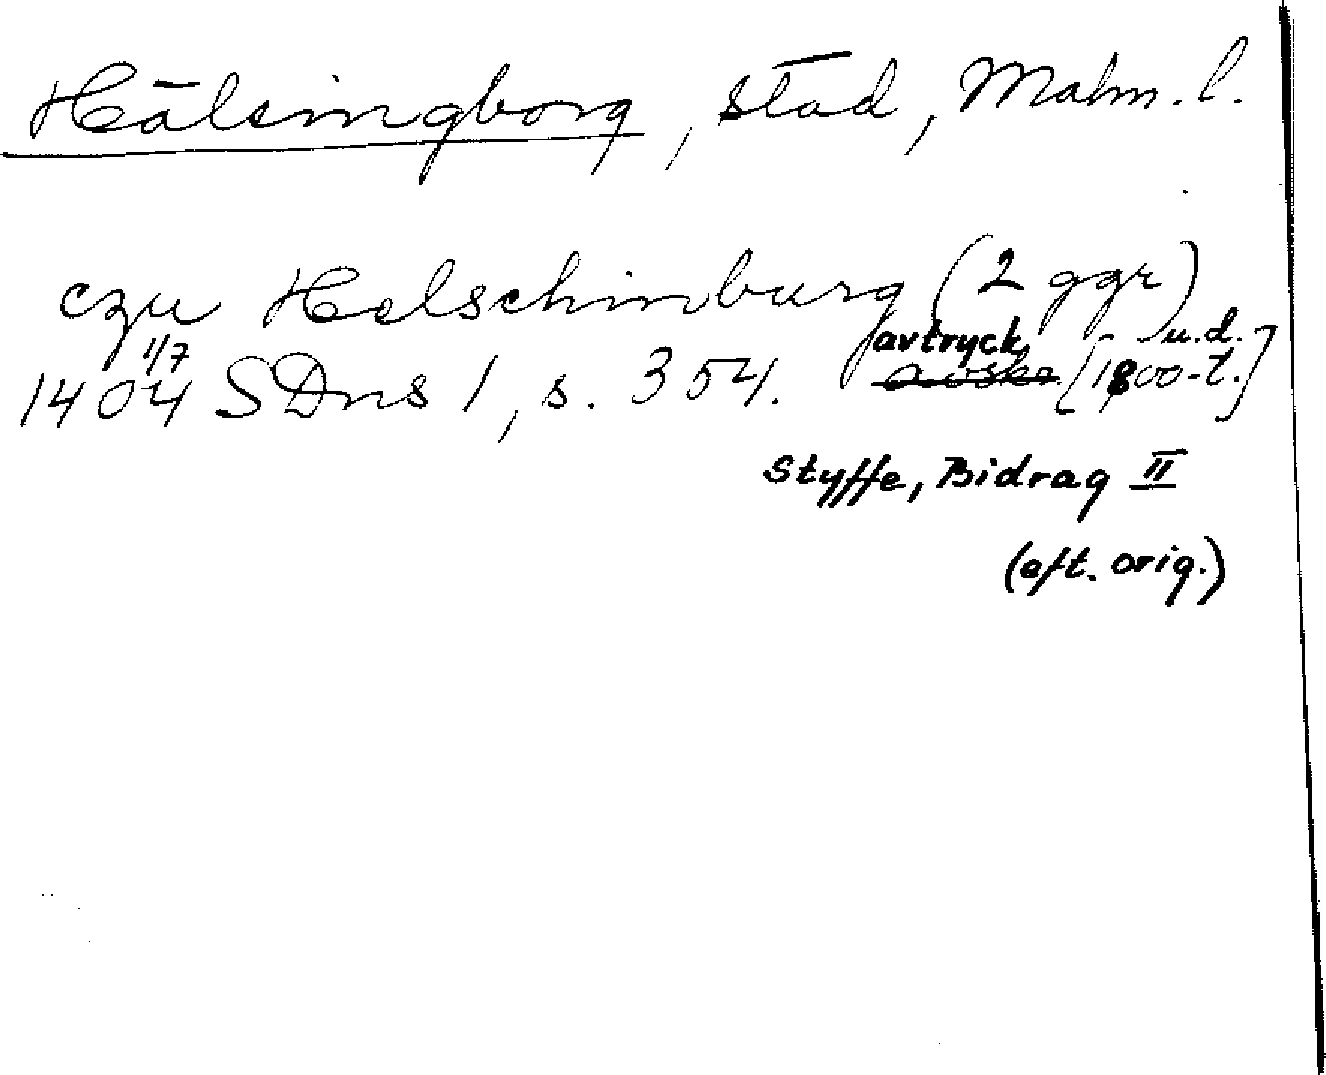 Hälsingborg, stad, Malm. l.
czu Helschinburg (2 ggr)
1404 1/7 SDns 1, s. 354. avtryck u.d. [1800-t.]
Styffe, Bidrag II
(eft. orig.)